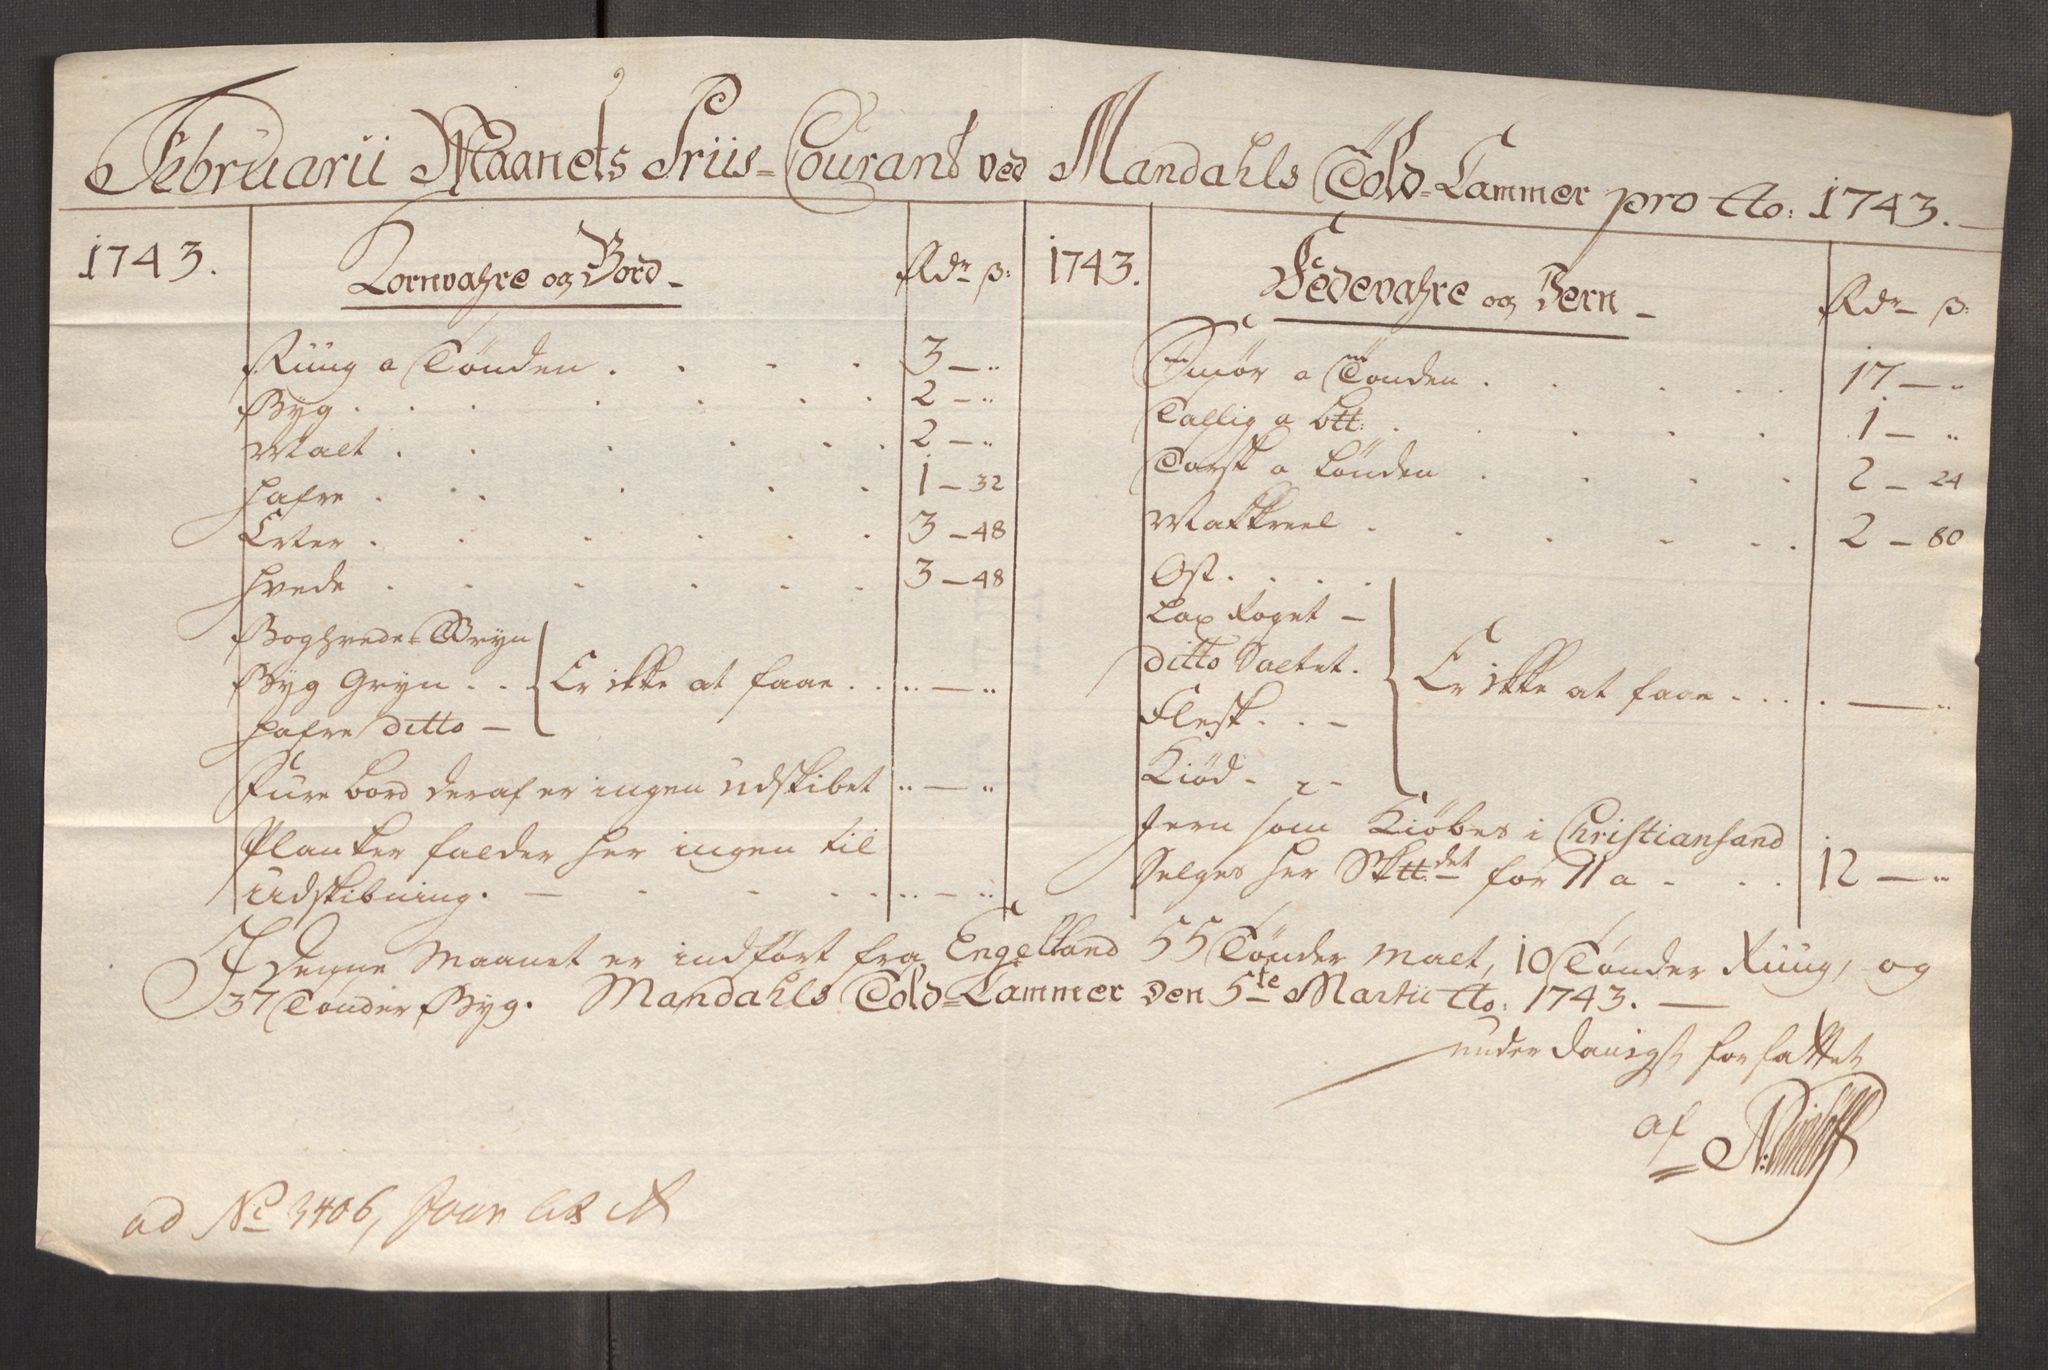 Februarii Maanets Priis-Courant ved Mandahls Told-Cammer pro Ao: 1743.
1743. Kornvahre og Bord Rdr ß:
Rüüg a Tønden . . . . 3 — "
Byg . . . . . . 2 — "
Malt . . . . . 2 — "
Hafre . . . . . 1 — 32
Erter . . . . . 3 — 48
Hvede . . . . . 3 — 48
Boghvede-Gryn
Byg Gryn . . Er ikke at faae . . " — "
Hafre ditto —
Fure bord deraf er ingen udskibet " — "
Planker falder her ingen til
udskibning. — . . . . " — "
1743. Fedevahre og Jern Rdr ß:
Smør a Tønden . . . . 17 — "
Tallig a Ltt: . . . . 1 — "
Torsk a tønden . . . . 2 — 24
Makkreel . . . . . 2 — 80
Ost . . . .
Lax Røget —
ditto Saltet. Er ikke at faae . . . . — "
Flesk . . —
Kiød - " -
Jern som Kiøbes i Christiansand
Selges her Sktt:det for 11 a . . . 12 — "
I denne Maanet er indført fra Engelland 55 Tønder Malt, 10 Tønder Rüüg, og
37 Tønder Byg. Mandahls Told-Cammer den 5te Martii Ao: 1743. —
underdanigst forfattet
af
ad No 3406,